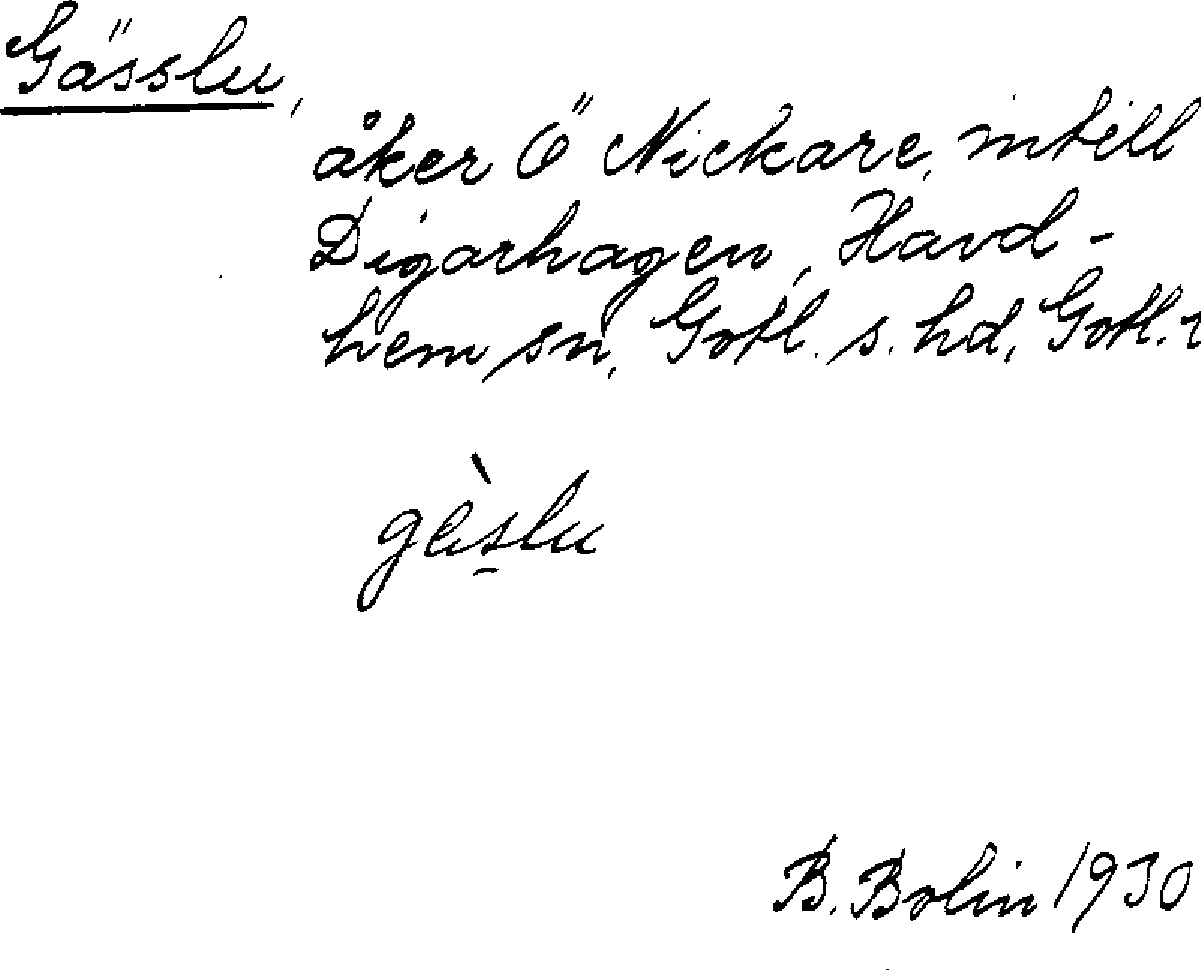 Gässlu,
åker Ö Nickare, intill
Digarhagen, Havd-
hem sn, Gotl. s. hd, Gotl.
gèslu
B. Bolin 1930